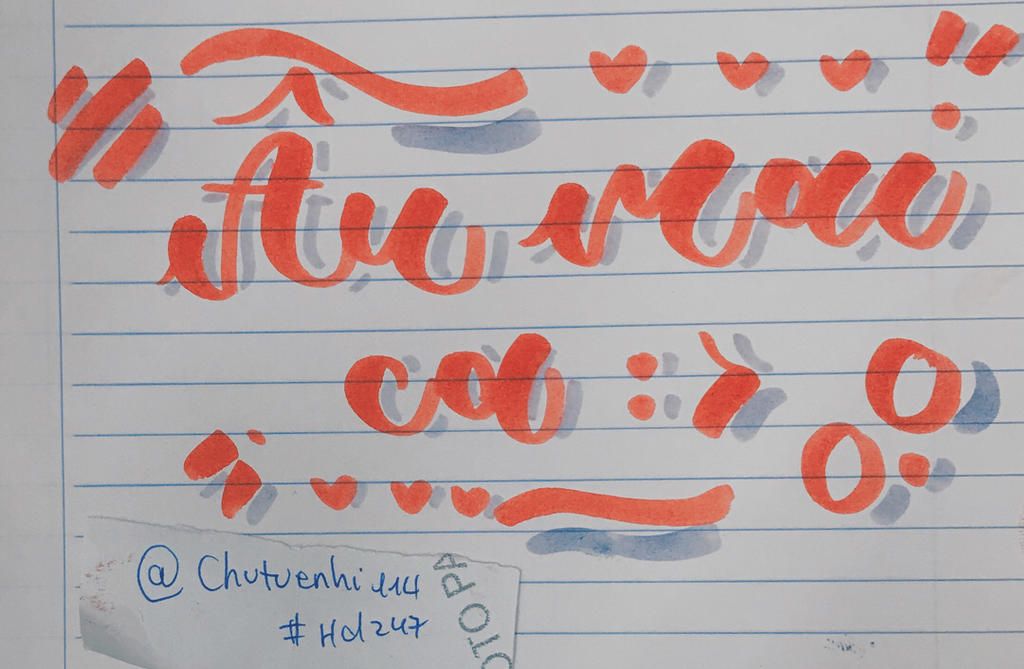 Âu mai
:>
@Chutuenhi114
#Hd247
OTO PA